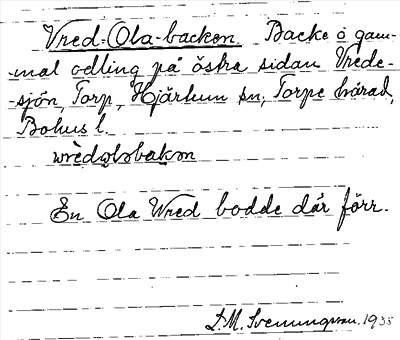 Vred-Ola-backen. Backe o gam-
mal odling på östra sidan Vrede-
sjön, Torp, Hjärtum sn, Torpe härad,
Bohus l.
En Ola Wred bodde där förr.
D.M. Svenningsson. 1935